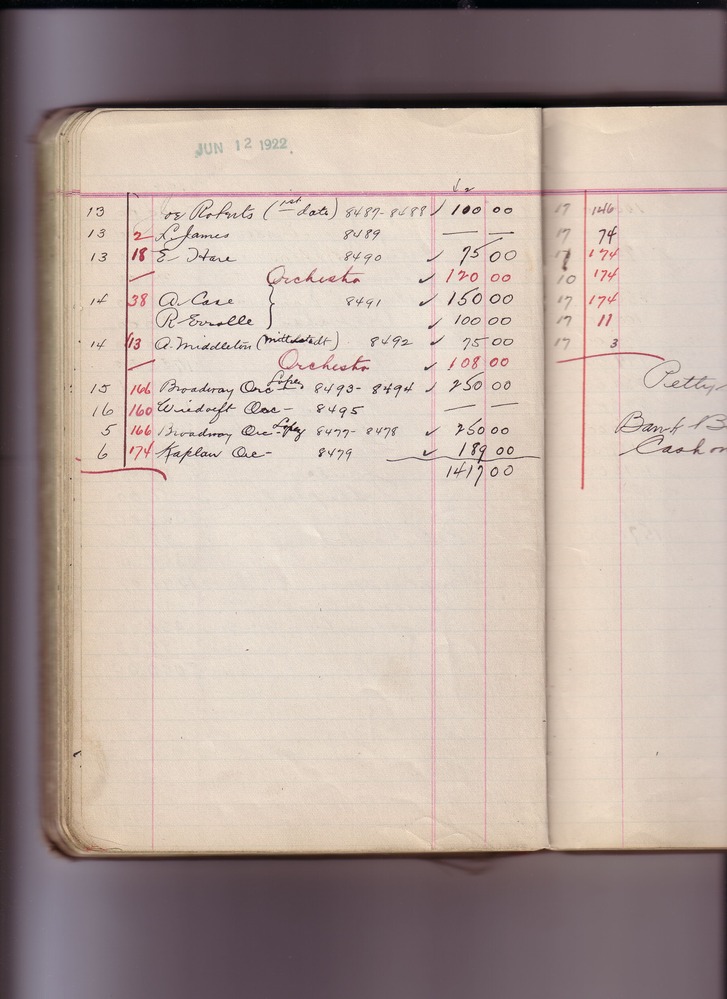 JUN 12 1922
13 Joe Roberts (1st date) 8487-8488 ✓ 100 00
13 2 L. James 8489 — —
13 18 E. Hare 8490 ✓ 75 00
— Orchestra ✓ 120 00
14 38 A. Case } 8491 ✓ 150 00
R. Errolle ✓ 100 00
14 13 A. Middleton (Mittelstedt) 8492 ✓ 75 00
— Orchestra ✓ 108 00
15 166 Broadway Orc - Lopez 8493-8494 ✓ 250 00
16 160 Wiedoeft Orc - 8495 — —
5 166 Broadway Orc - Lopez 8477-8478 ✓ 250 00
6 174 Kaplan Orc - 8479 ✓ 189 00
1417 00
17 146
17 74
17 174
10 174
17 174
17 11
17 3
Petty
Bank B
Cash on